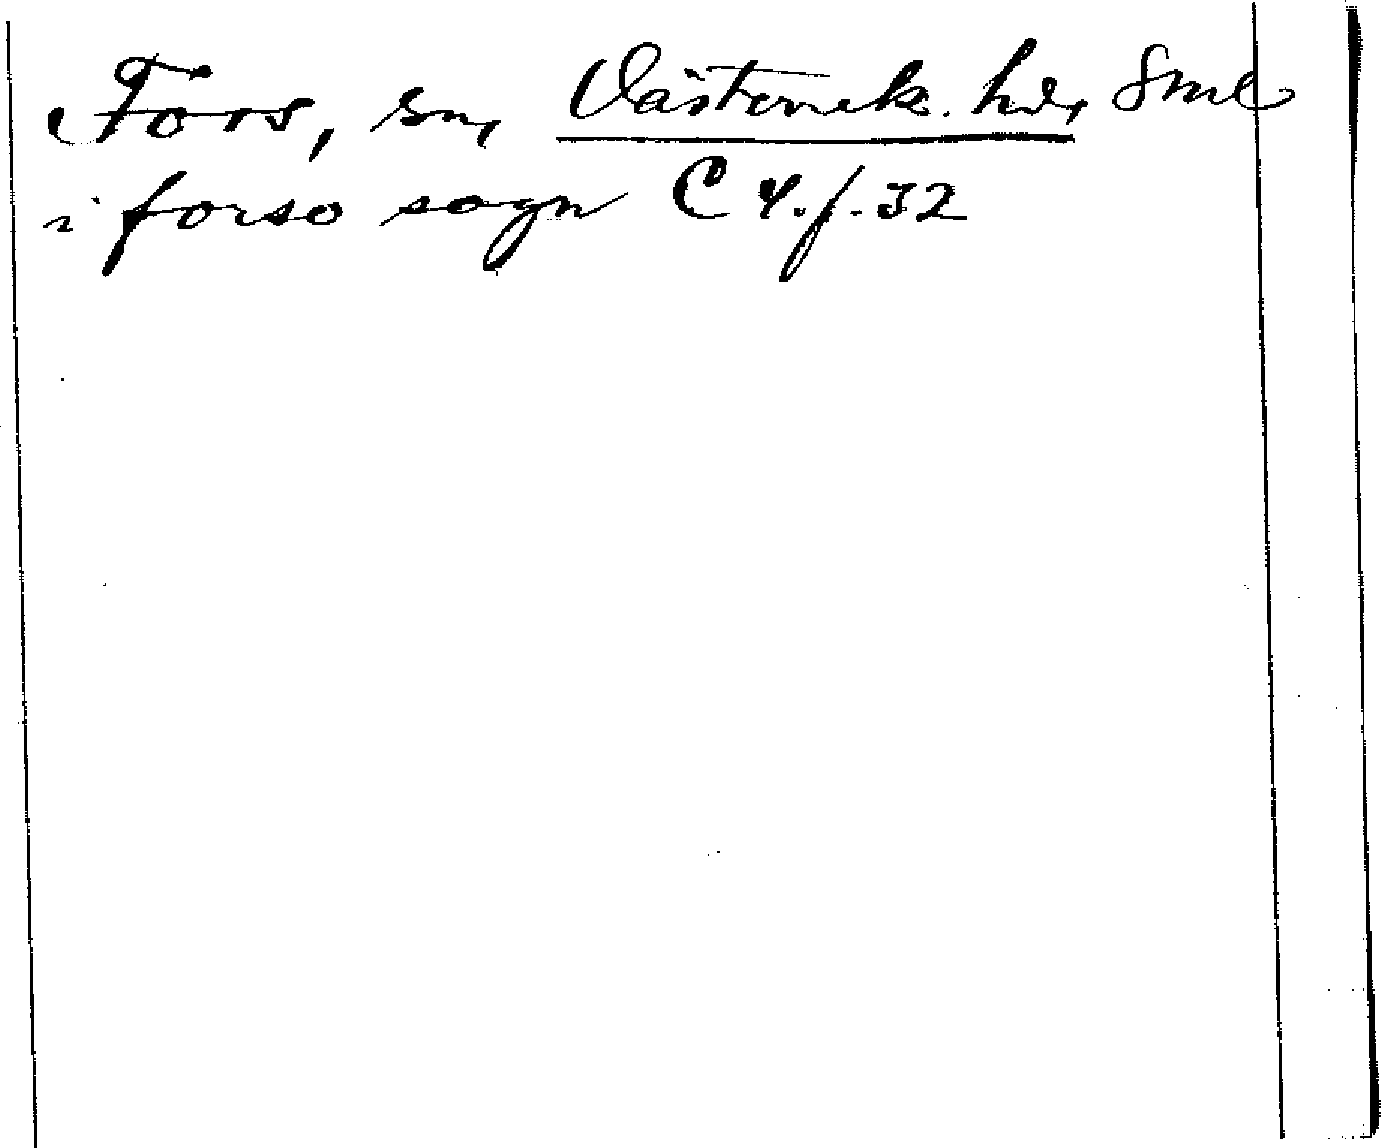 Fors, sn, Västerrek. hd, Sml
i forso sogn C 4. f. 32